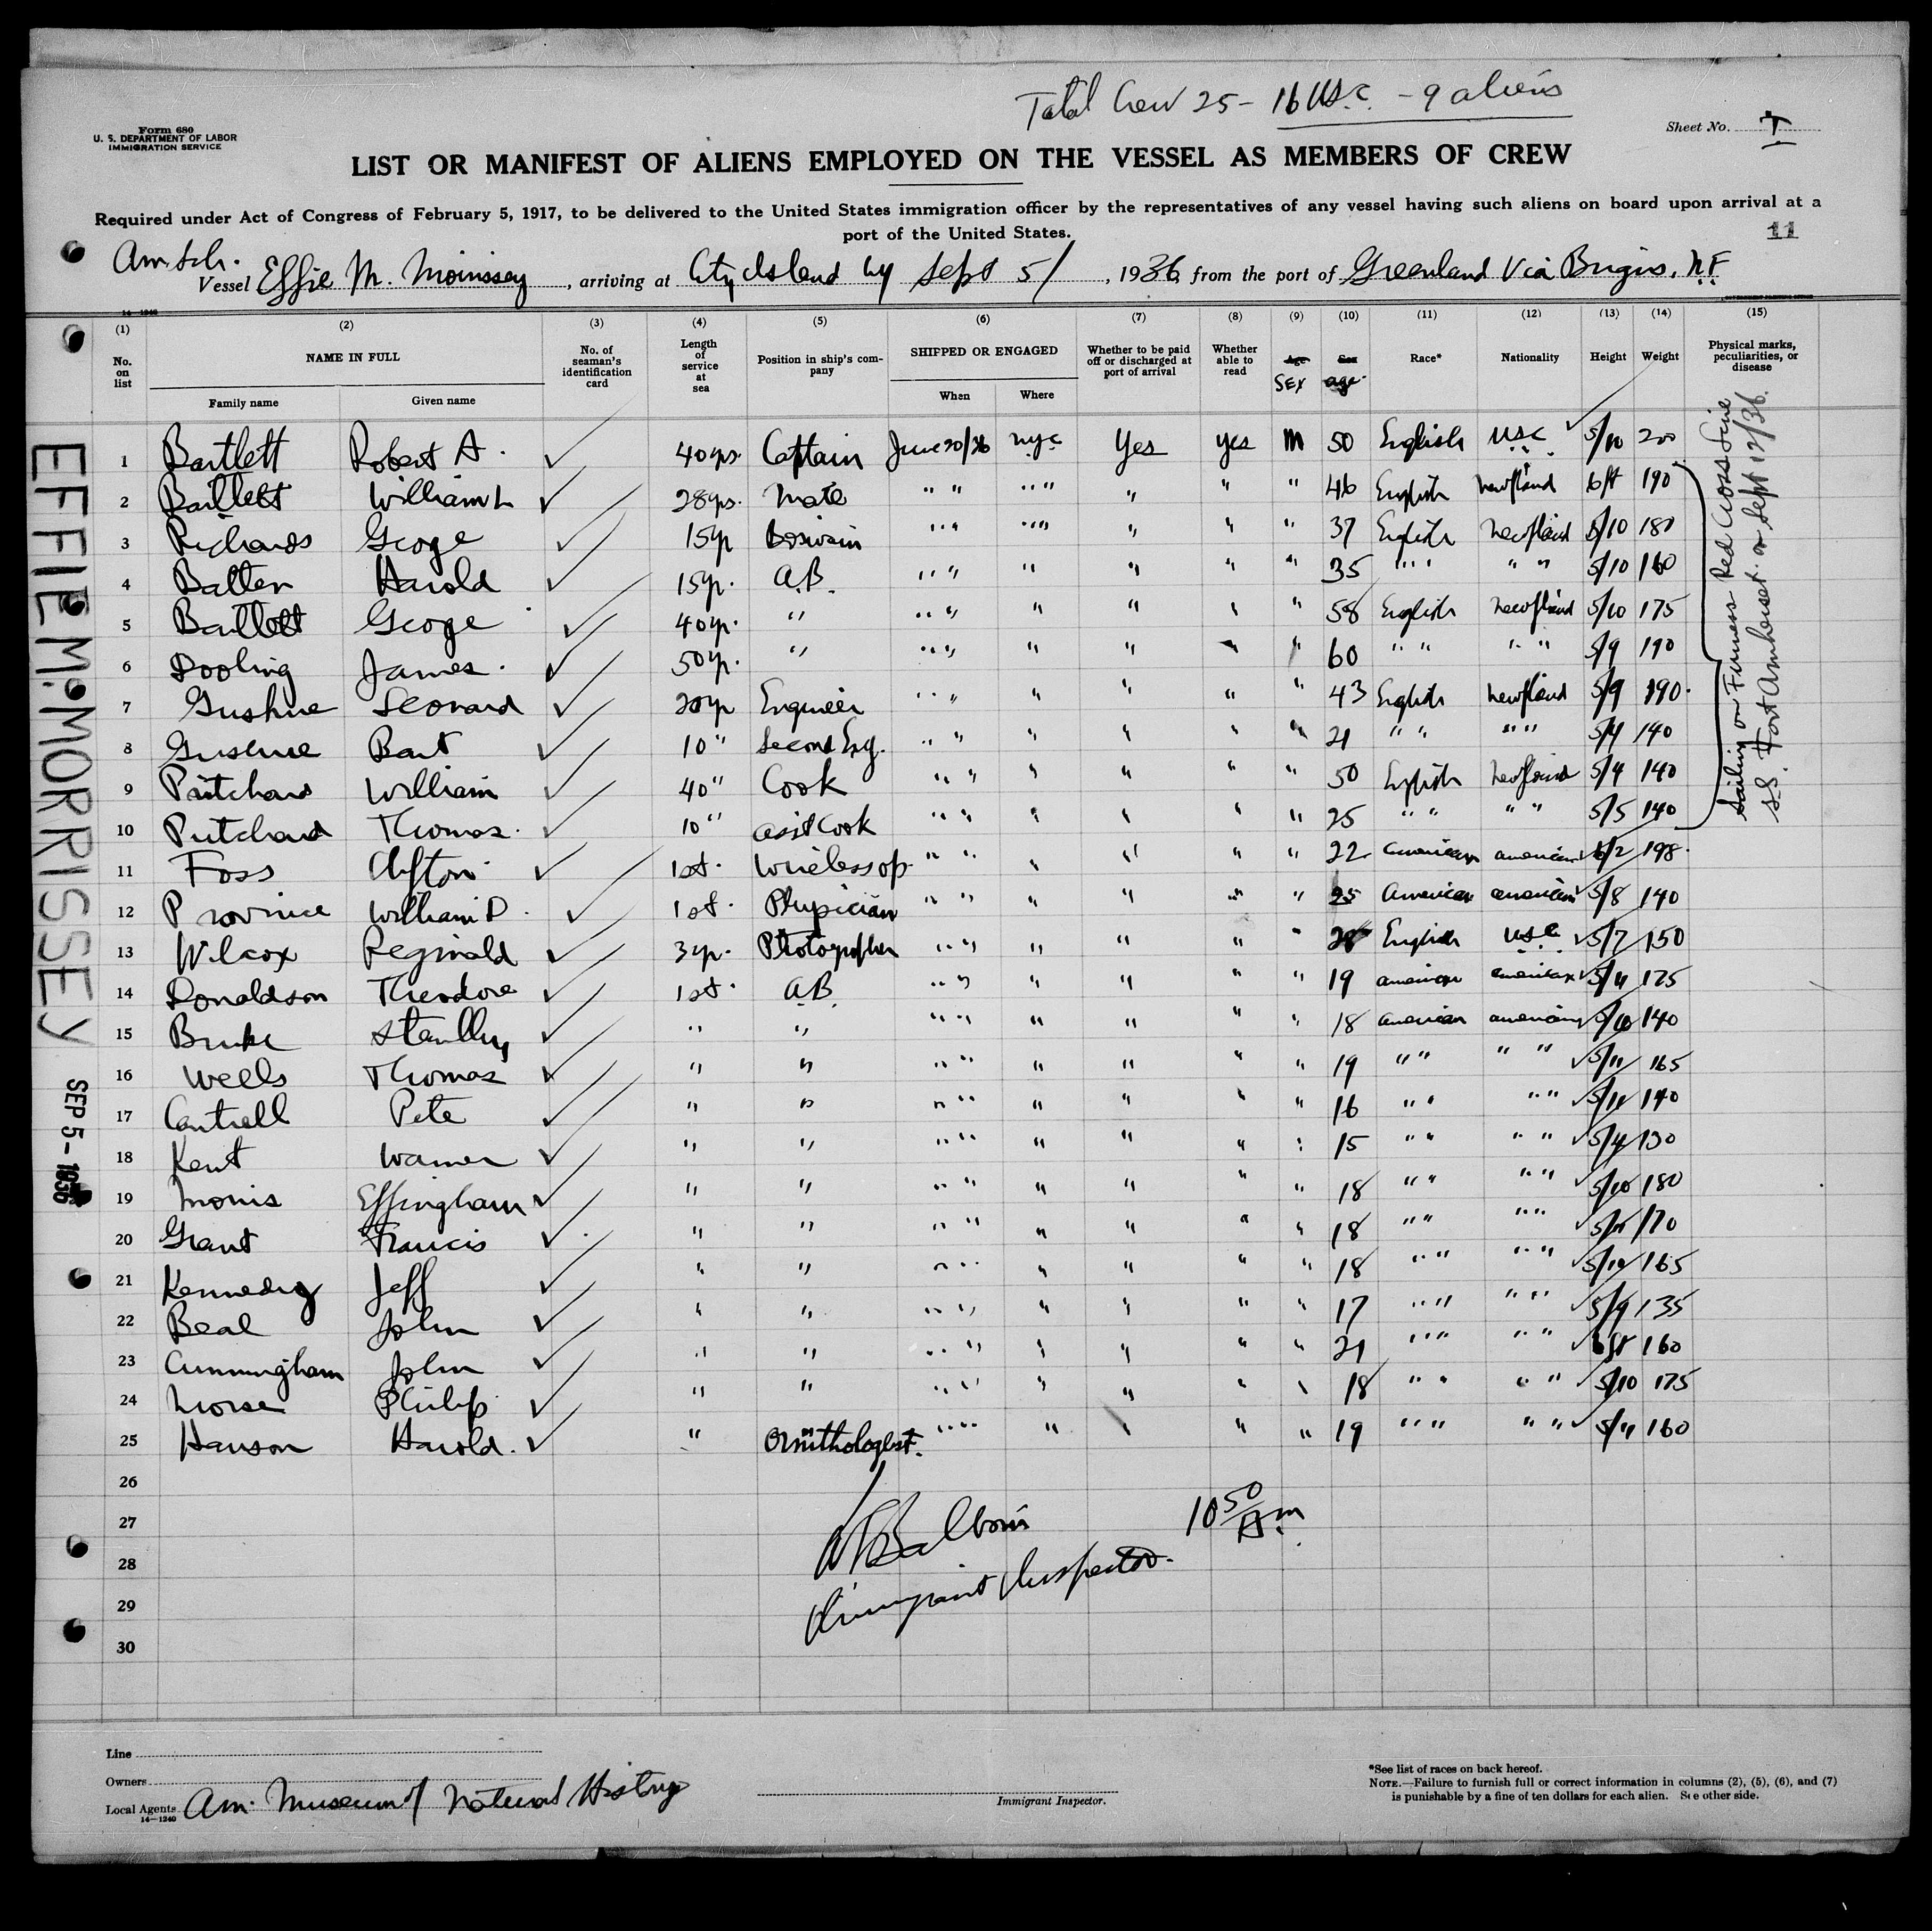 Total Crew 25 - 16 USC. - 9 aliens
Form 680
U. S. DEPARTMENT OF LABOR
IMMIGRATION SERVICE
Sheet No. I
LIST OR MANIFEST OF ALIENS EMPLOYED ON THE VESSEL AS MEMBERS OF CREW
Required under Act of Congress of February 5, 1917, to be delivered to the United States immigration officer by the representatives of any vessel having such aliens on board upon arrival at a
port of the United States.
11
Am. Sch.
Vessel Effie M. Morrissey, arriving at City Island NY Sept 5/, 1936, from the port of Greenland Via Brigus, N.F.
14-1240
(1) (2) (3) (4) (5) (6) (7) (8) (9) (10) (11) (12) (13) (14) (15)
No. on list
NAME IN FULL
Family name Given name
No. of seaman's identification card
Length of service at sea
Position in ship's company
SHIPPED OR ENGAGED
When Where
Whether to be paid off or discharged at port of arrival
Whether able to read
Age SEX
Sex age
Race*
Nationality
Height
Weight
Physical marks, peculiarities, or disease
1 Bartlett Robert A. 40 yrs. Captain June 20/36 NYC Yes yes M 50 English USC 5/10 200
2 Bartlett William L 28 yrs. Mate " " " " " " " 46 English Newfland 6 ft 190
3 Richards George 15 yr Boswain " " " " " " " 37 English Newfland 5/10 180
4 Batten Harold 15 yr. A.B. " " " " " " 35 " " " " 5/10 160
5 Bartlett George 40 yr. " " " " " " " 58 English Newfland 5/10 175
6 Dooling James. 50 yr. " " " " " " " 60 " " " " 5/9 190
7 Gushue Leonard 20 yr Engineer " " " " " " 43 English Newfland 5/9 190.
8 Gushue Bart 10 " Second Eng. " " " " " " 21 " " " " 5/4 140
9 Pritchard William 40 " Cook " " " " " " 50 English Newfland 5/4 140
10 Pritchard Thomas. 10 " asst Cook " " " " " " 25 " " " " 5/5 140
11 Foss Clifton 1st. Wireless op " " " " " " 22 American american 6/2 198.
12 Province William D. 1st. Physician " " " " " " 25 American american 5/8 140
13 Wilcox Reginald 3 yr. Photographer " " " " " " 28 English USC 5/7 150
14 Donaldson Theodore 1st. A.B. " " " " " " 19 american american 5/11 175
15 Burke Stanlley " " " " " " " " 18 american american 5/10 140
16 Wells Thomas " " " " " " " " 19 " " " " 5/11 165
17 Cantrell Pete " " " " " " " " 16 " " " " 5/11 140
18 Kent Warner " " " " " " " " 15 " " " " 5/4 130
19 Morris Effingham " " " " " " " " 18 " " " " 5/10 180
20 Grant Francis " " " " " " " " 18 " " " " 170
21 Kennedy Jeff " " " " " " " " 18 " " " " 5/10 165
22 Beal John " " " " " " " " 17 " " " " 5/9 135
23 Cunningham John " " " " " " " " 21 " " " " 6 ft 160
24 Morse Philip " " " " " " " " 18 " " " " 5/10 175
25 Hanson Harold. " Ornithologist. " " " " " " 19 " " " " 5/11 160
26
27
28
29
30
Sailing on Furness Red Cross Line
S.S. Fort Amherst. on Sept 12/36.
EFFIE M. MORRISSEY
SEP 5 - 1936
10 50 AM
Immigrant Inspector.
Line
Owners
Local Agents Am. Museum of Natural History
14-1240
Immigrant Inspector.
*See list of races on back hereof.
NOTE.—Failure to furnish full or correct information in columns (2), (5), (6), and (7)
is punishable by a fine of ten dollars for each alien. See other side.